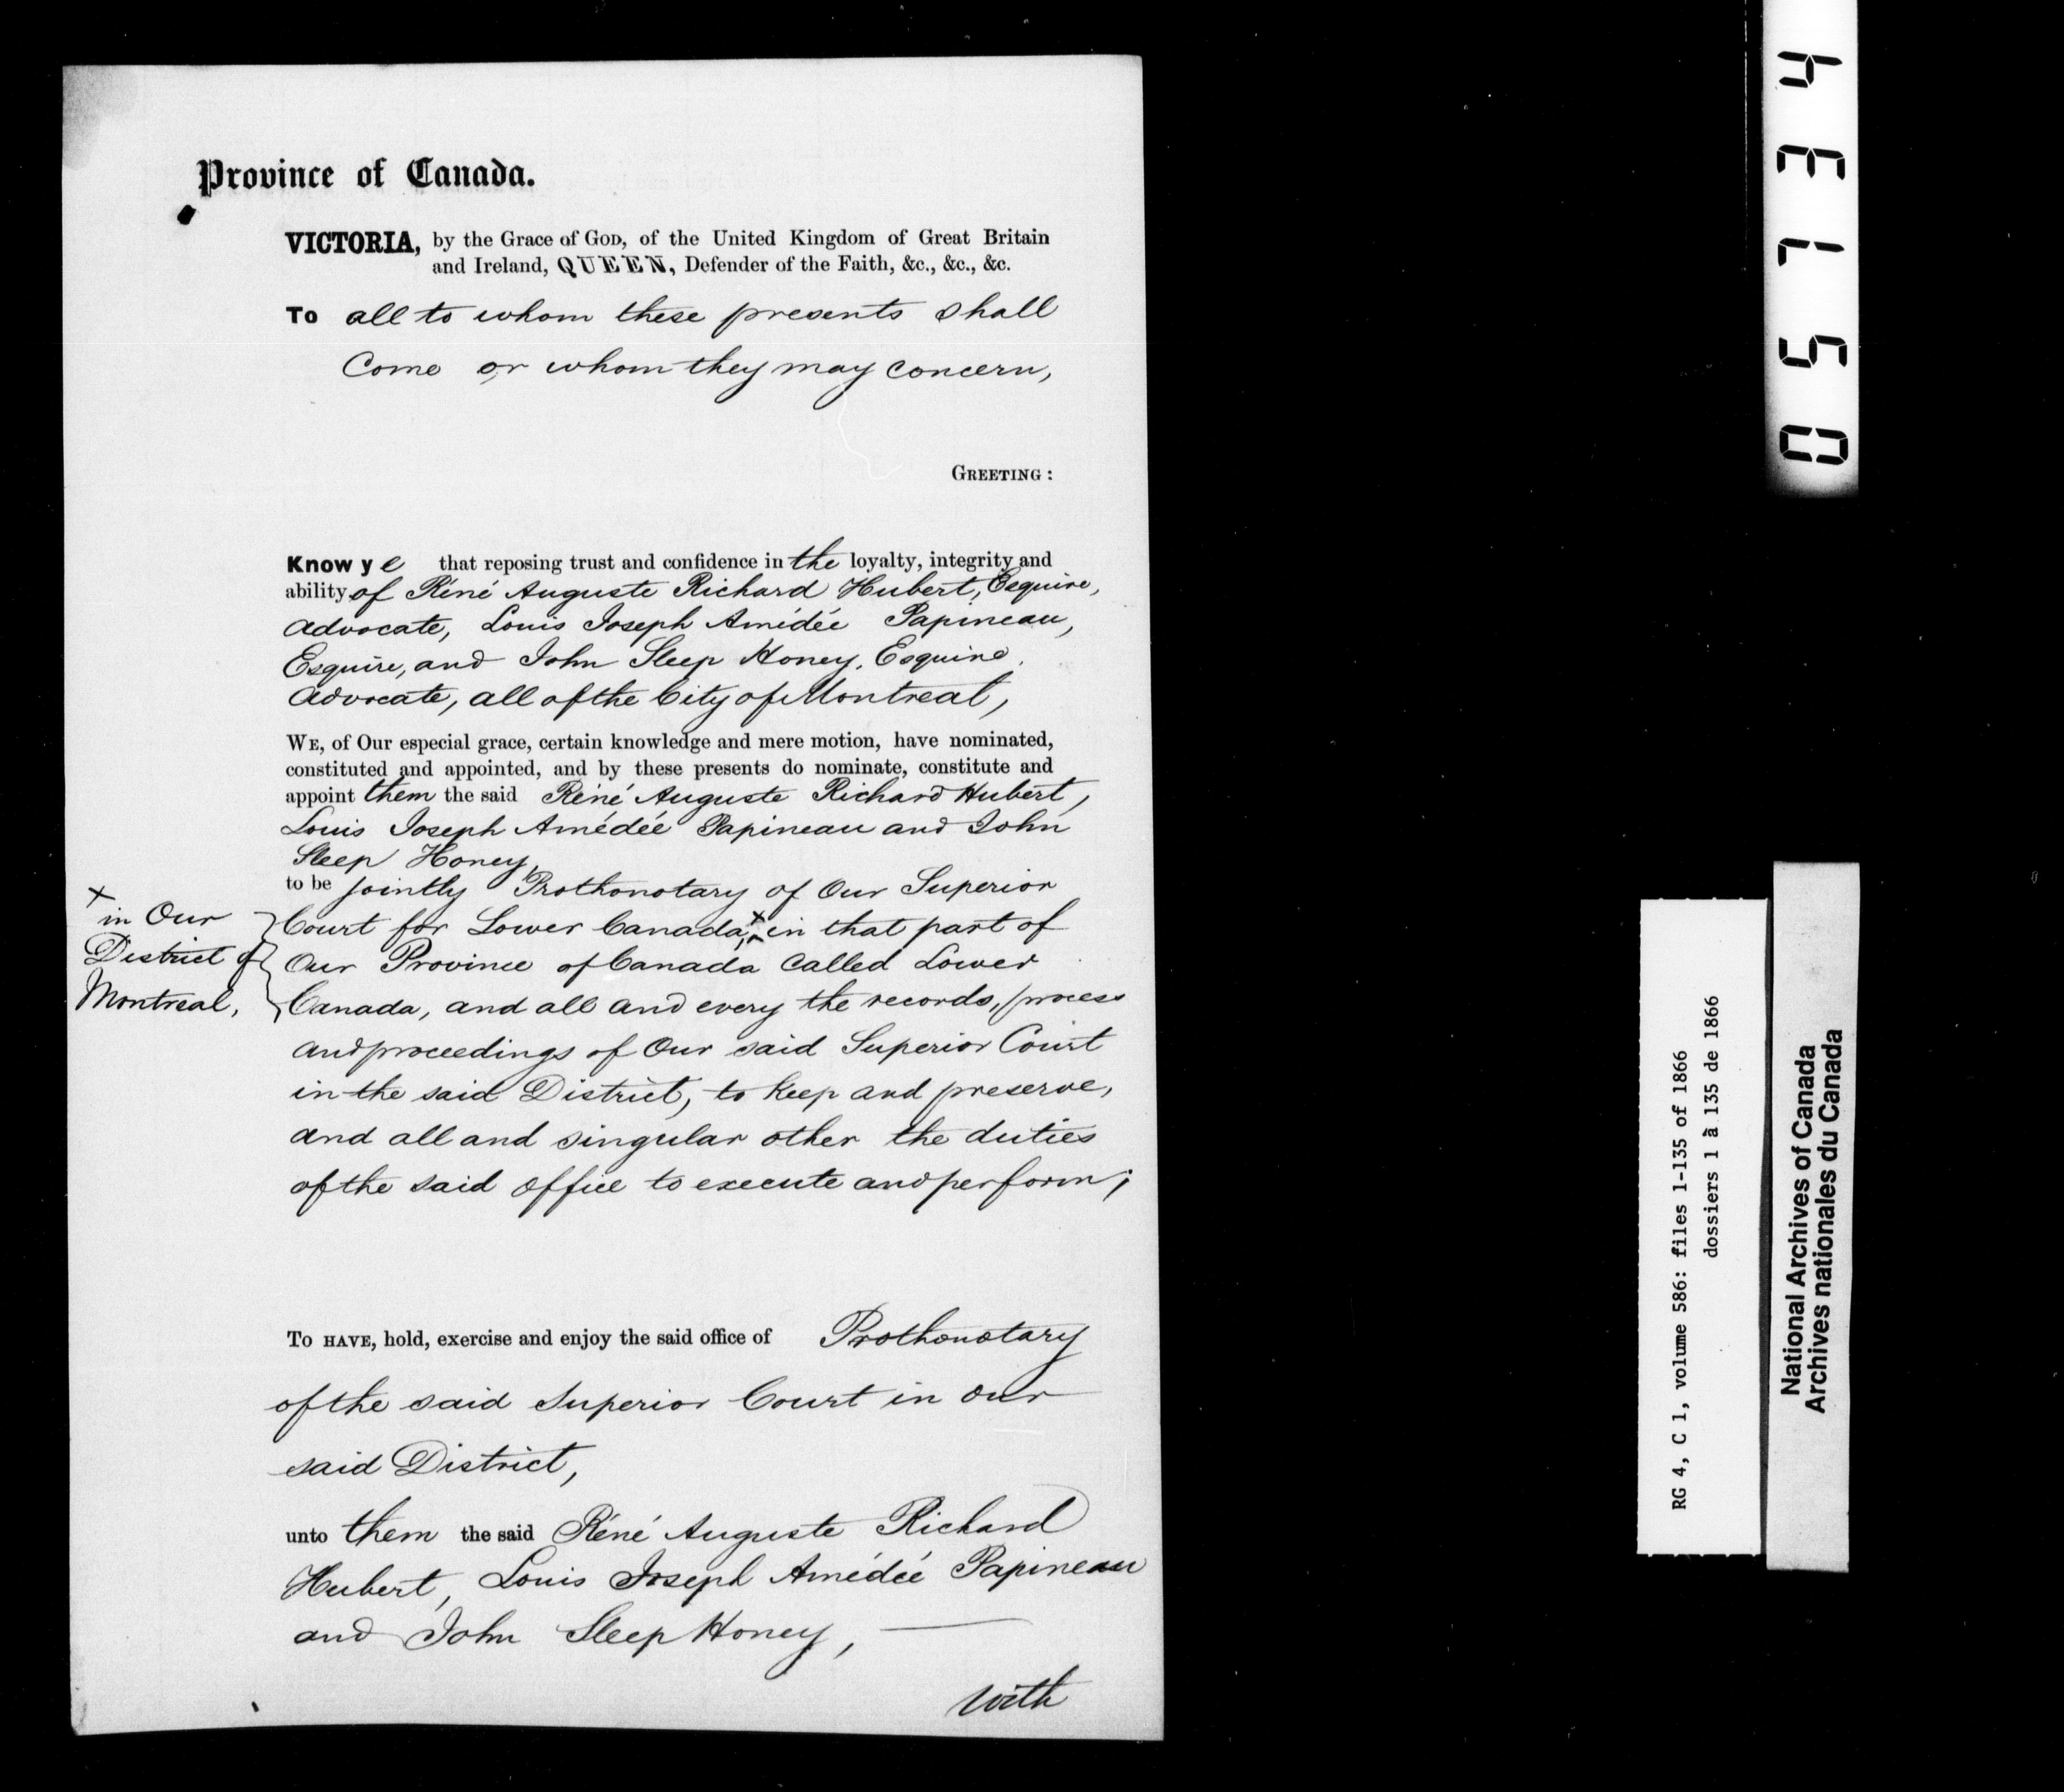 Province of Canada.
VICTORIA, by the Grace of GOD, of the United Kingdom of Great Britain
and Ireland, QUEEN, Defender of the Faith, &c., &c., &c.
To all to whom these presents shall
Come or whom they may concern,
GREETING :
Know ye that reposing trust and confidence in the loyalty, integrity and
ability of Réné Auguste Richard Hubert, Esquire,
Advocate, Louis Joseph Amédée Papineau,
Esquire, and John Sleep Honey, Esquire,
Advocate, all of the City of Montreal,
WE, of Our especial grace, certain knowledge and mere motion, have nominated,
constituted and appointed, and by these presents do nominate, constitute and
appoint them the said Réné Auguste Richard Hubert,
Louis Joseph Amédée Papineau and John
Sleep Honey,
to be jointly Prothonotary of Our Superior
Court for Lower Canada, x in that part of
Our Province of Canada called Lower
Canada, and all and every the records, process
and proceedings of Our said Superior Court
in the said District, to keep and preserve,
and all and singular other the duties
of the said office to execute and perform;
x
in Our
District of
Montreal,
To HAVE, hold, exercise and enjoy the said office of Prothonotary
of the said Superior Court in our
said District,
unto them the said Réné Auguste Richard
Hubert, Louis Joseph Amédée Papineau
and John Sleep Honey,
with
05134
RG 4, C 1, volume 586: files 1-135 of 1866
dossiers 1 à 135 de 1866
National Archives of Canada
Archives nationales du Canada